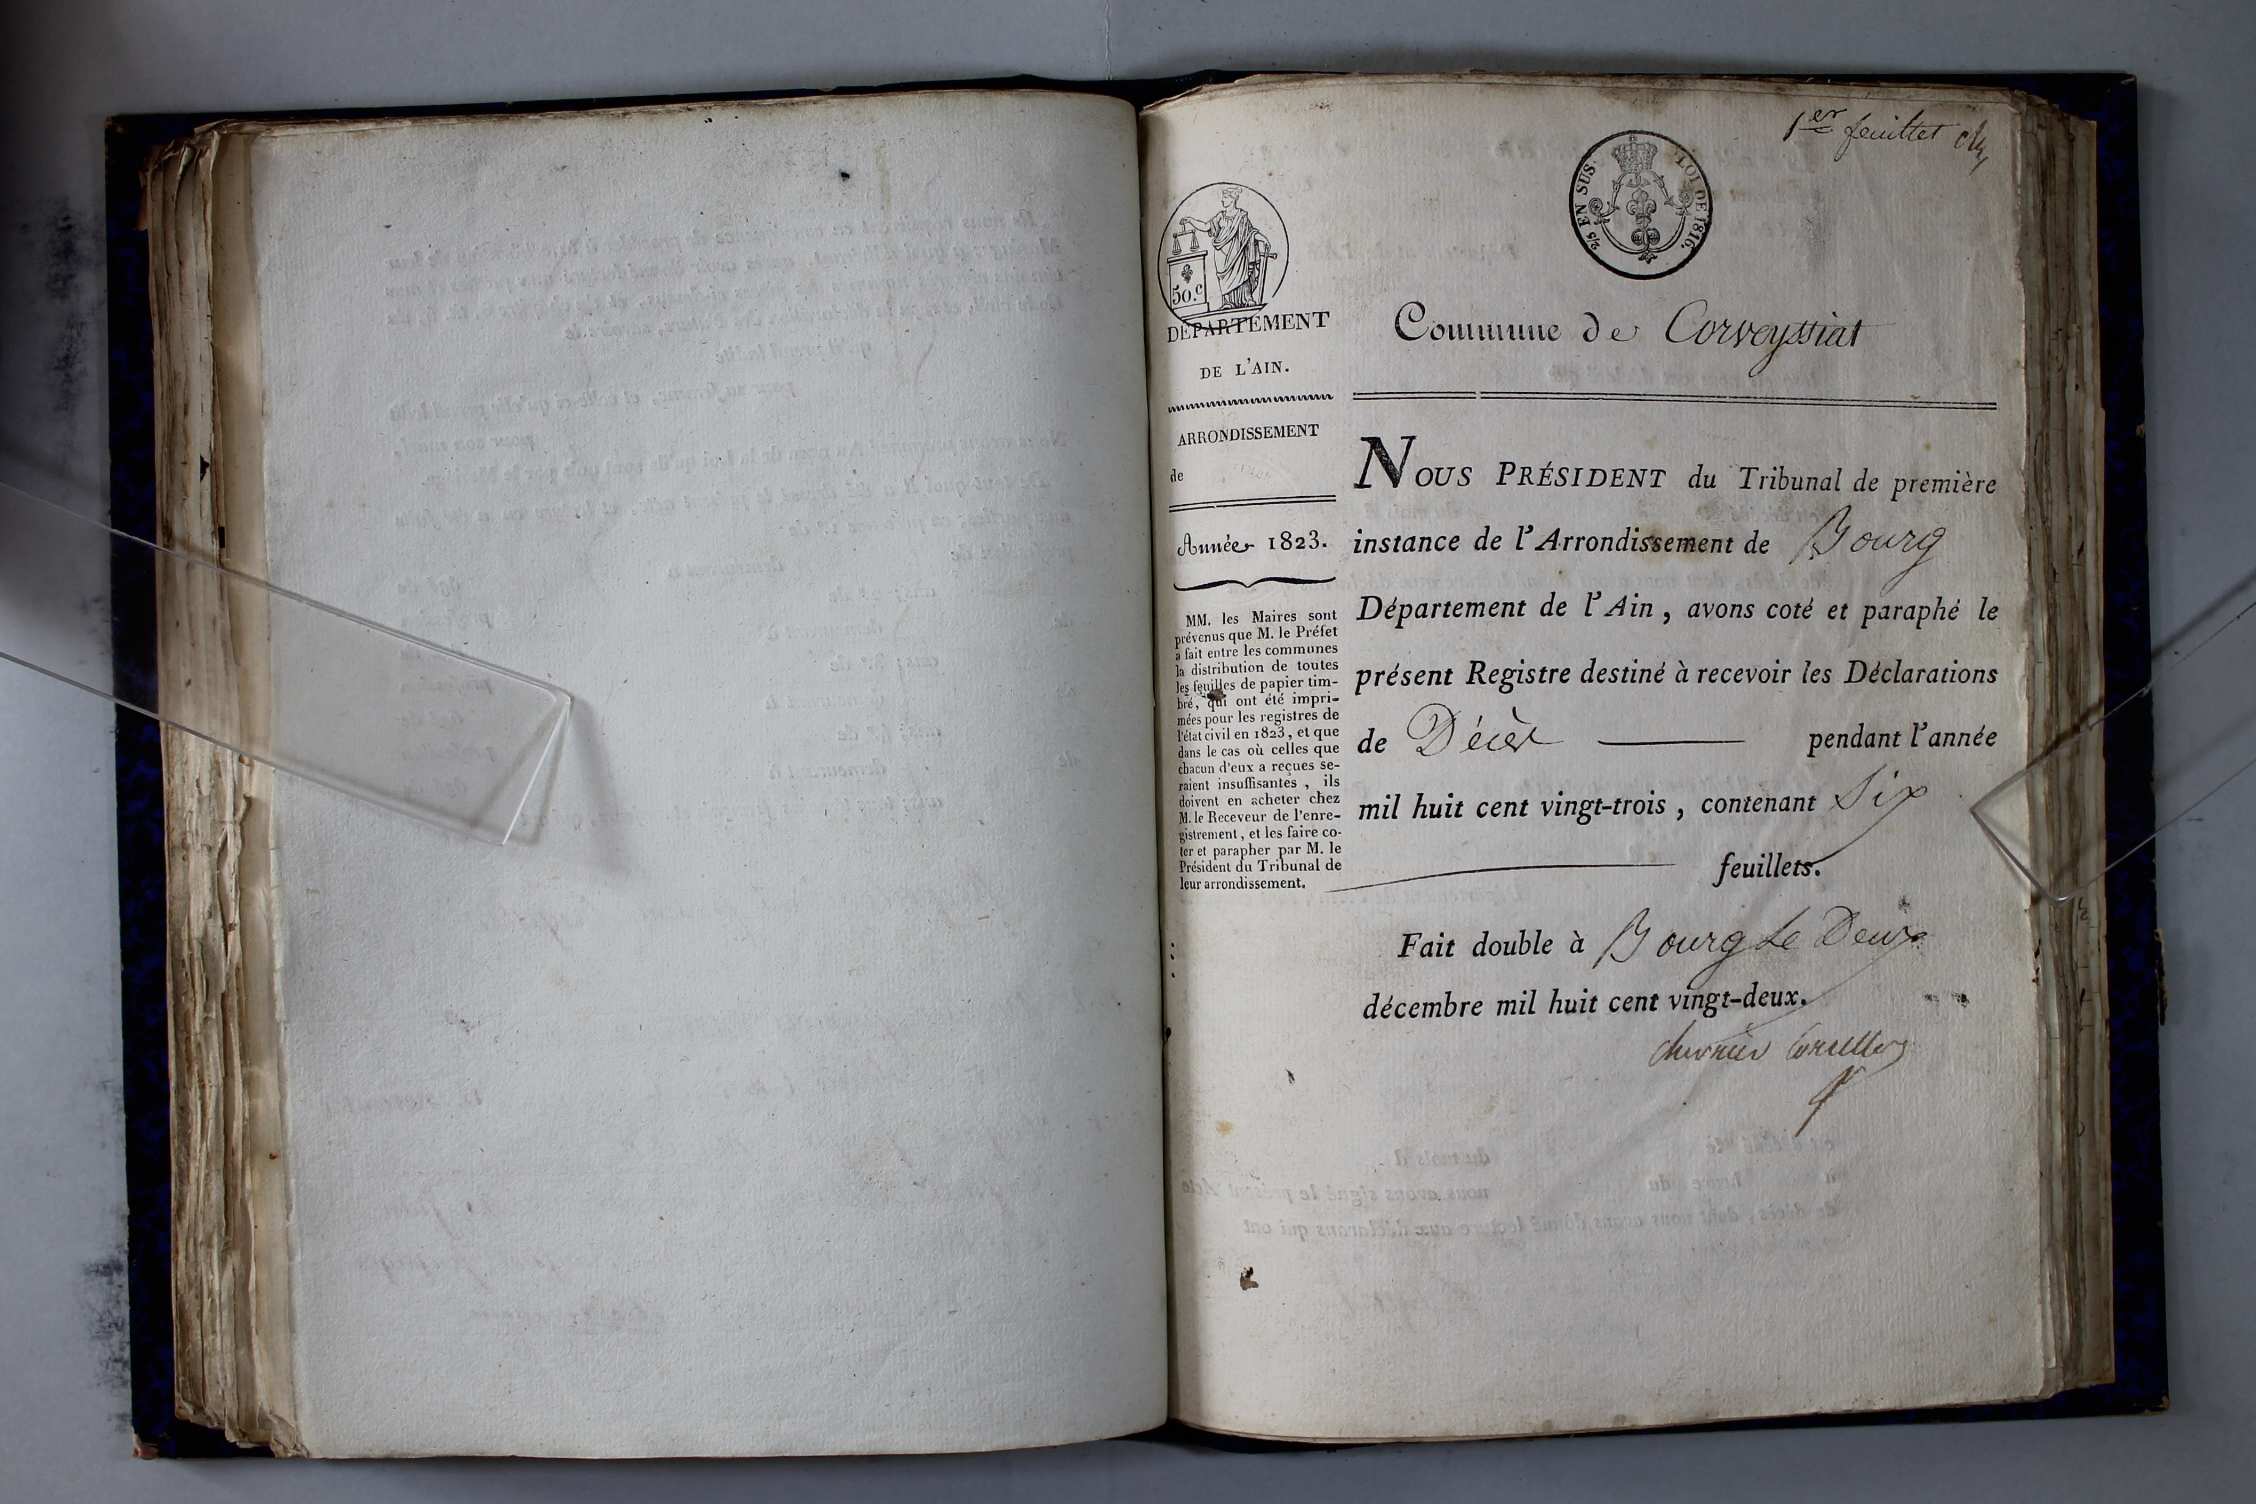 1er feuillet
2/5 EN SUS. LOI DE 1816.
50.c
DÉPARTEMENT
DE L'AIN.
ARRONDISSEMENT
de
Année 1823.
MM. les Maires sont
prévenus que M. le Préfet
a fait entre les communes
la distribution de toutes
les feuilles de papier tim-
bré, qui ont été impri-
mées pour les registres de
l'état civil en 1823, et que
dans le cas où celles que
chacun d'eux a reçues se-
raient insuffisantes, ils
doivent en acheter chez
M. le Receveur de l'enre-
gistrement, et les faire co-
ter et parapher par M. le
Président du Tribunal de
leur arrondissement.
Commune de Corveyssiat
NOUS PRÉSIDENT du Tribunal de première
instance de l'Arrondissement de Bourg
Département de l'Ain, avons coté et paraphé le
présent Registre destiné à recevoir les Déclarations
de Décès pendant l'année
mil huit cent vingt-trois, contenant Six
feuillets.
Fait double à Bourg Le Deux
décembre mil huit cent vingt-deux.